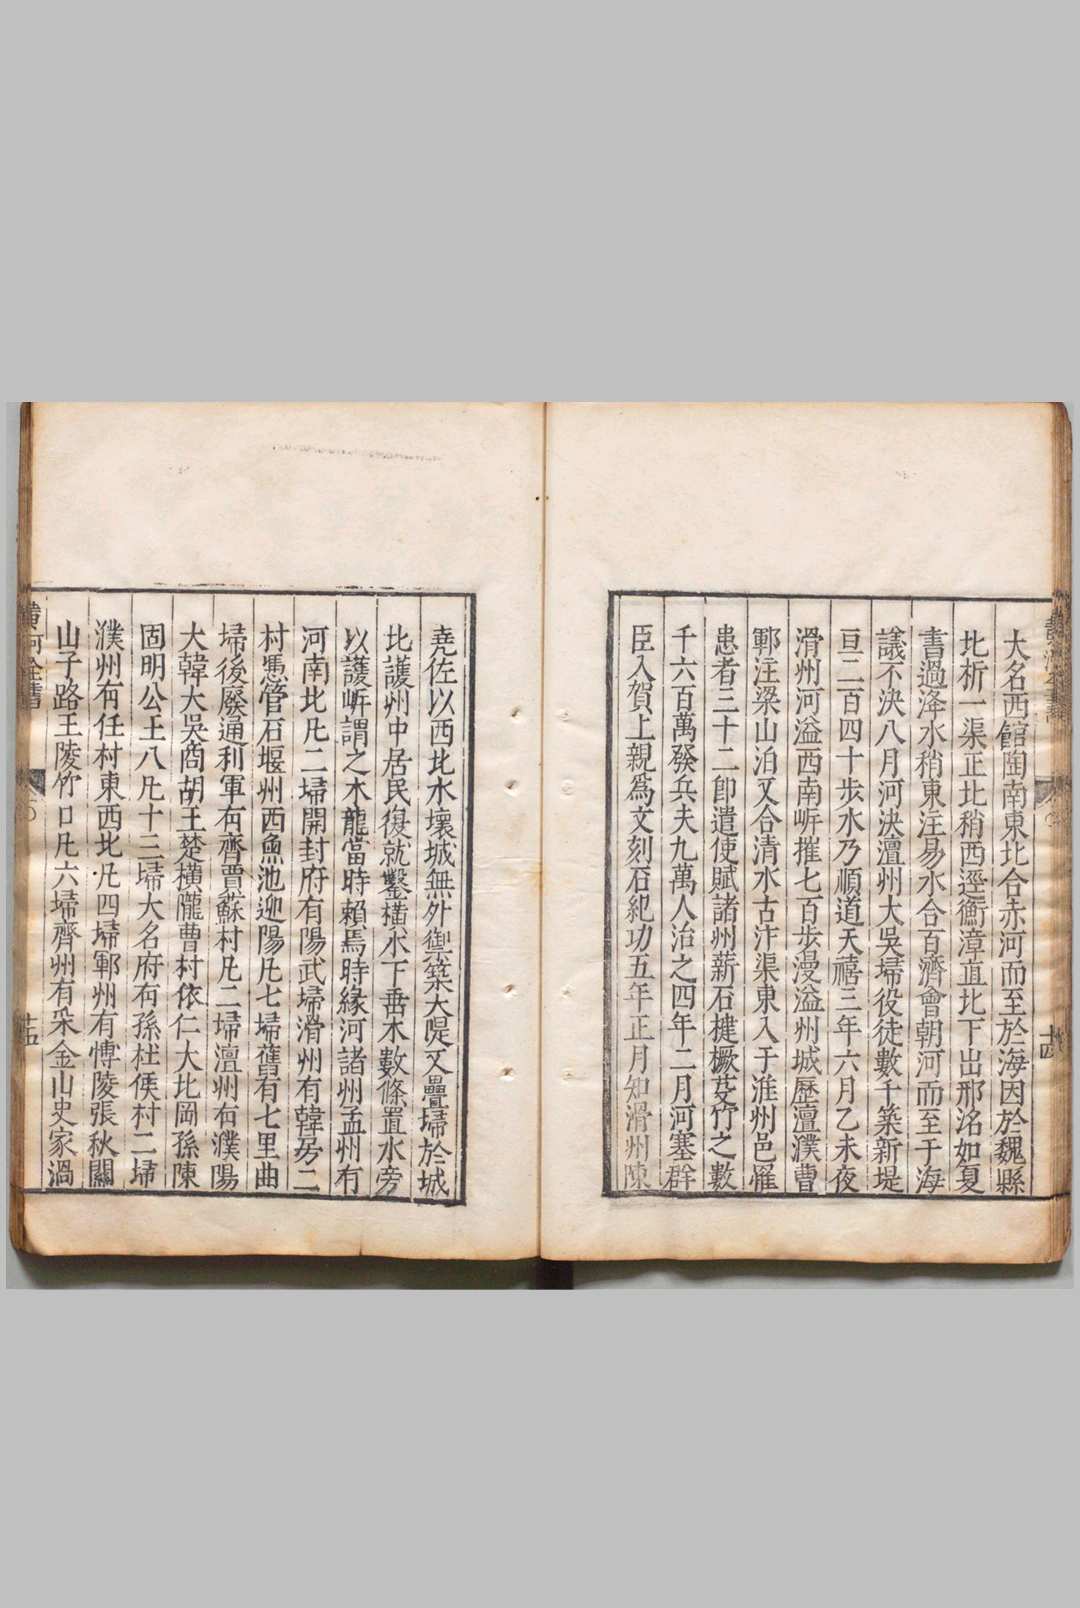 大名西館陶南東北合赤河而至於海因於魏縣
北析一渠正北稍西逕衡漳直北下出邢洺如夏
書過洚水稍東注易水合百濟會朝河而至于海
議不決八月河決澶州大吳埽役徒數千築新堤
亘二百四十步水乃順道天禧三年六月乙未夜
滑州河溢西南岸摧七百步漫溢州城歷澶濮曹
鄆注梁山泊又合清水古汴渠東入于淮州邑罹
患者三十二卽遣使賦諸州薪石楗橛芟竹之數
千六百萬發兵夫九萬人治之四年二月河塞群
臣入賀上親爲文刻石紀功五年正月知滑州陳
堯佐以西北水壞城無外禦築大隄又疊埽於城
北護州中居民復就鑿橫水下垂木數條置水旁
以護岸謂之木龍當時賴焉時緣河諸州孟州有
河南北凡二埽開封府有陽武埽滑州有韓房二
村憑管石堰州西魚池迎陽凡七埽舊有七里曲
埽後廢通利軍有齊賈蘇村凡二埽澶州有濮陽
大韓大吳商胡王楚橫隴曹村依仁大北岡孫陳
固明公王八凡十三埽大名府有孫杜侯村二埽
濮州有任村東西北凡四埽鄆州有博陵張秋關
山子路王陵竹口凡六埽齊州有采金山史家渦